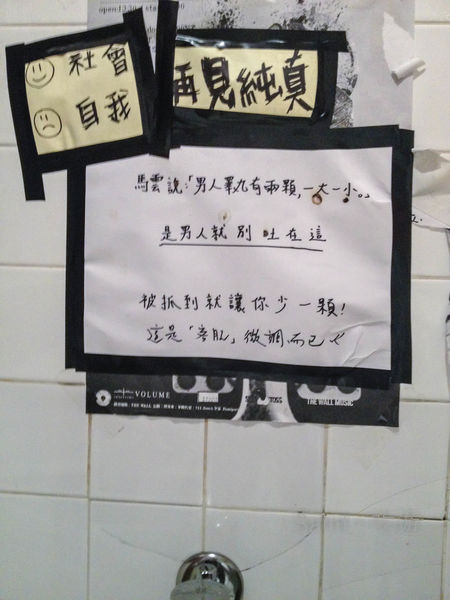 社會
自我
再見純真
馬雲說:「男人睪丸有兩顆,一大一小。」
是男人就別吐在這
被抓到就讓你少一顆!
這是「肌」微調而已
VOLUME
THE WALL MUSIC